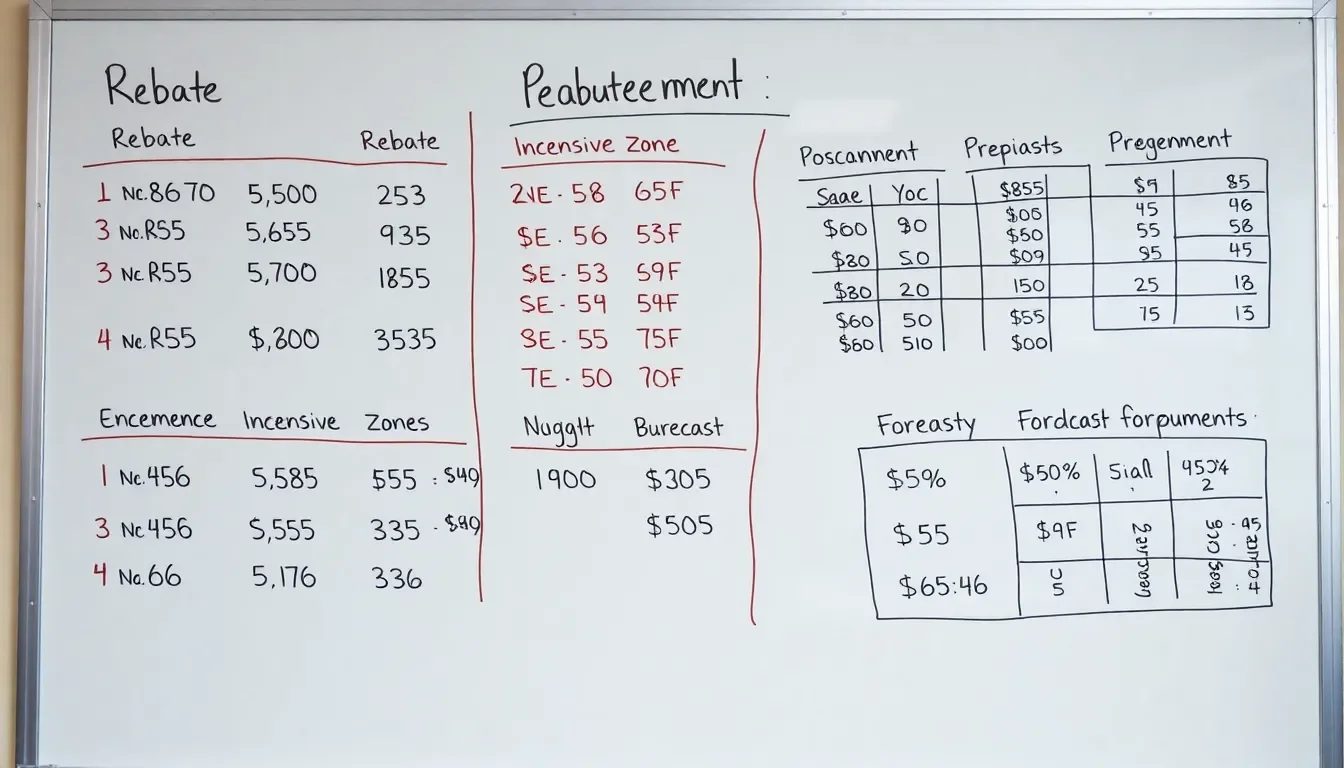 Rebate
Rebate Rebate
1 Nc.8670 5,500 253
3 No.R55 5,655 935
3 Nc.R55 5,700 1855
4 Ne.R55 $,800 3535
Encemence Incensive Zones
1 Nc.456 5,585 $55 : $49
3 Nc 456 5,555 335 . $99
4 No.66 5,176 336
Peabuteerment :
Incensive Zone
2VE . 58 65F
$E . 56 53F
SE - 53 59F
SE - 59 59F
8E - 55 75F
7E . 50 70F
Nuggtt Burecast
1900 $305
$505
Poscannent
Saae Yoc
$60 80
$80 50
$80 20
$60 50
$60 510
Prepiasts
$855
$06
$50
$09
150
$55
$00
Pregenment
$9 85
45 96
55 58
95 45
25 18
75 13
Foreasty Fordcast forpuments
$5% $50% Siall
$55 $9F
$65:46